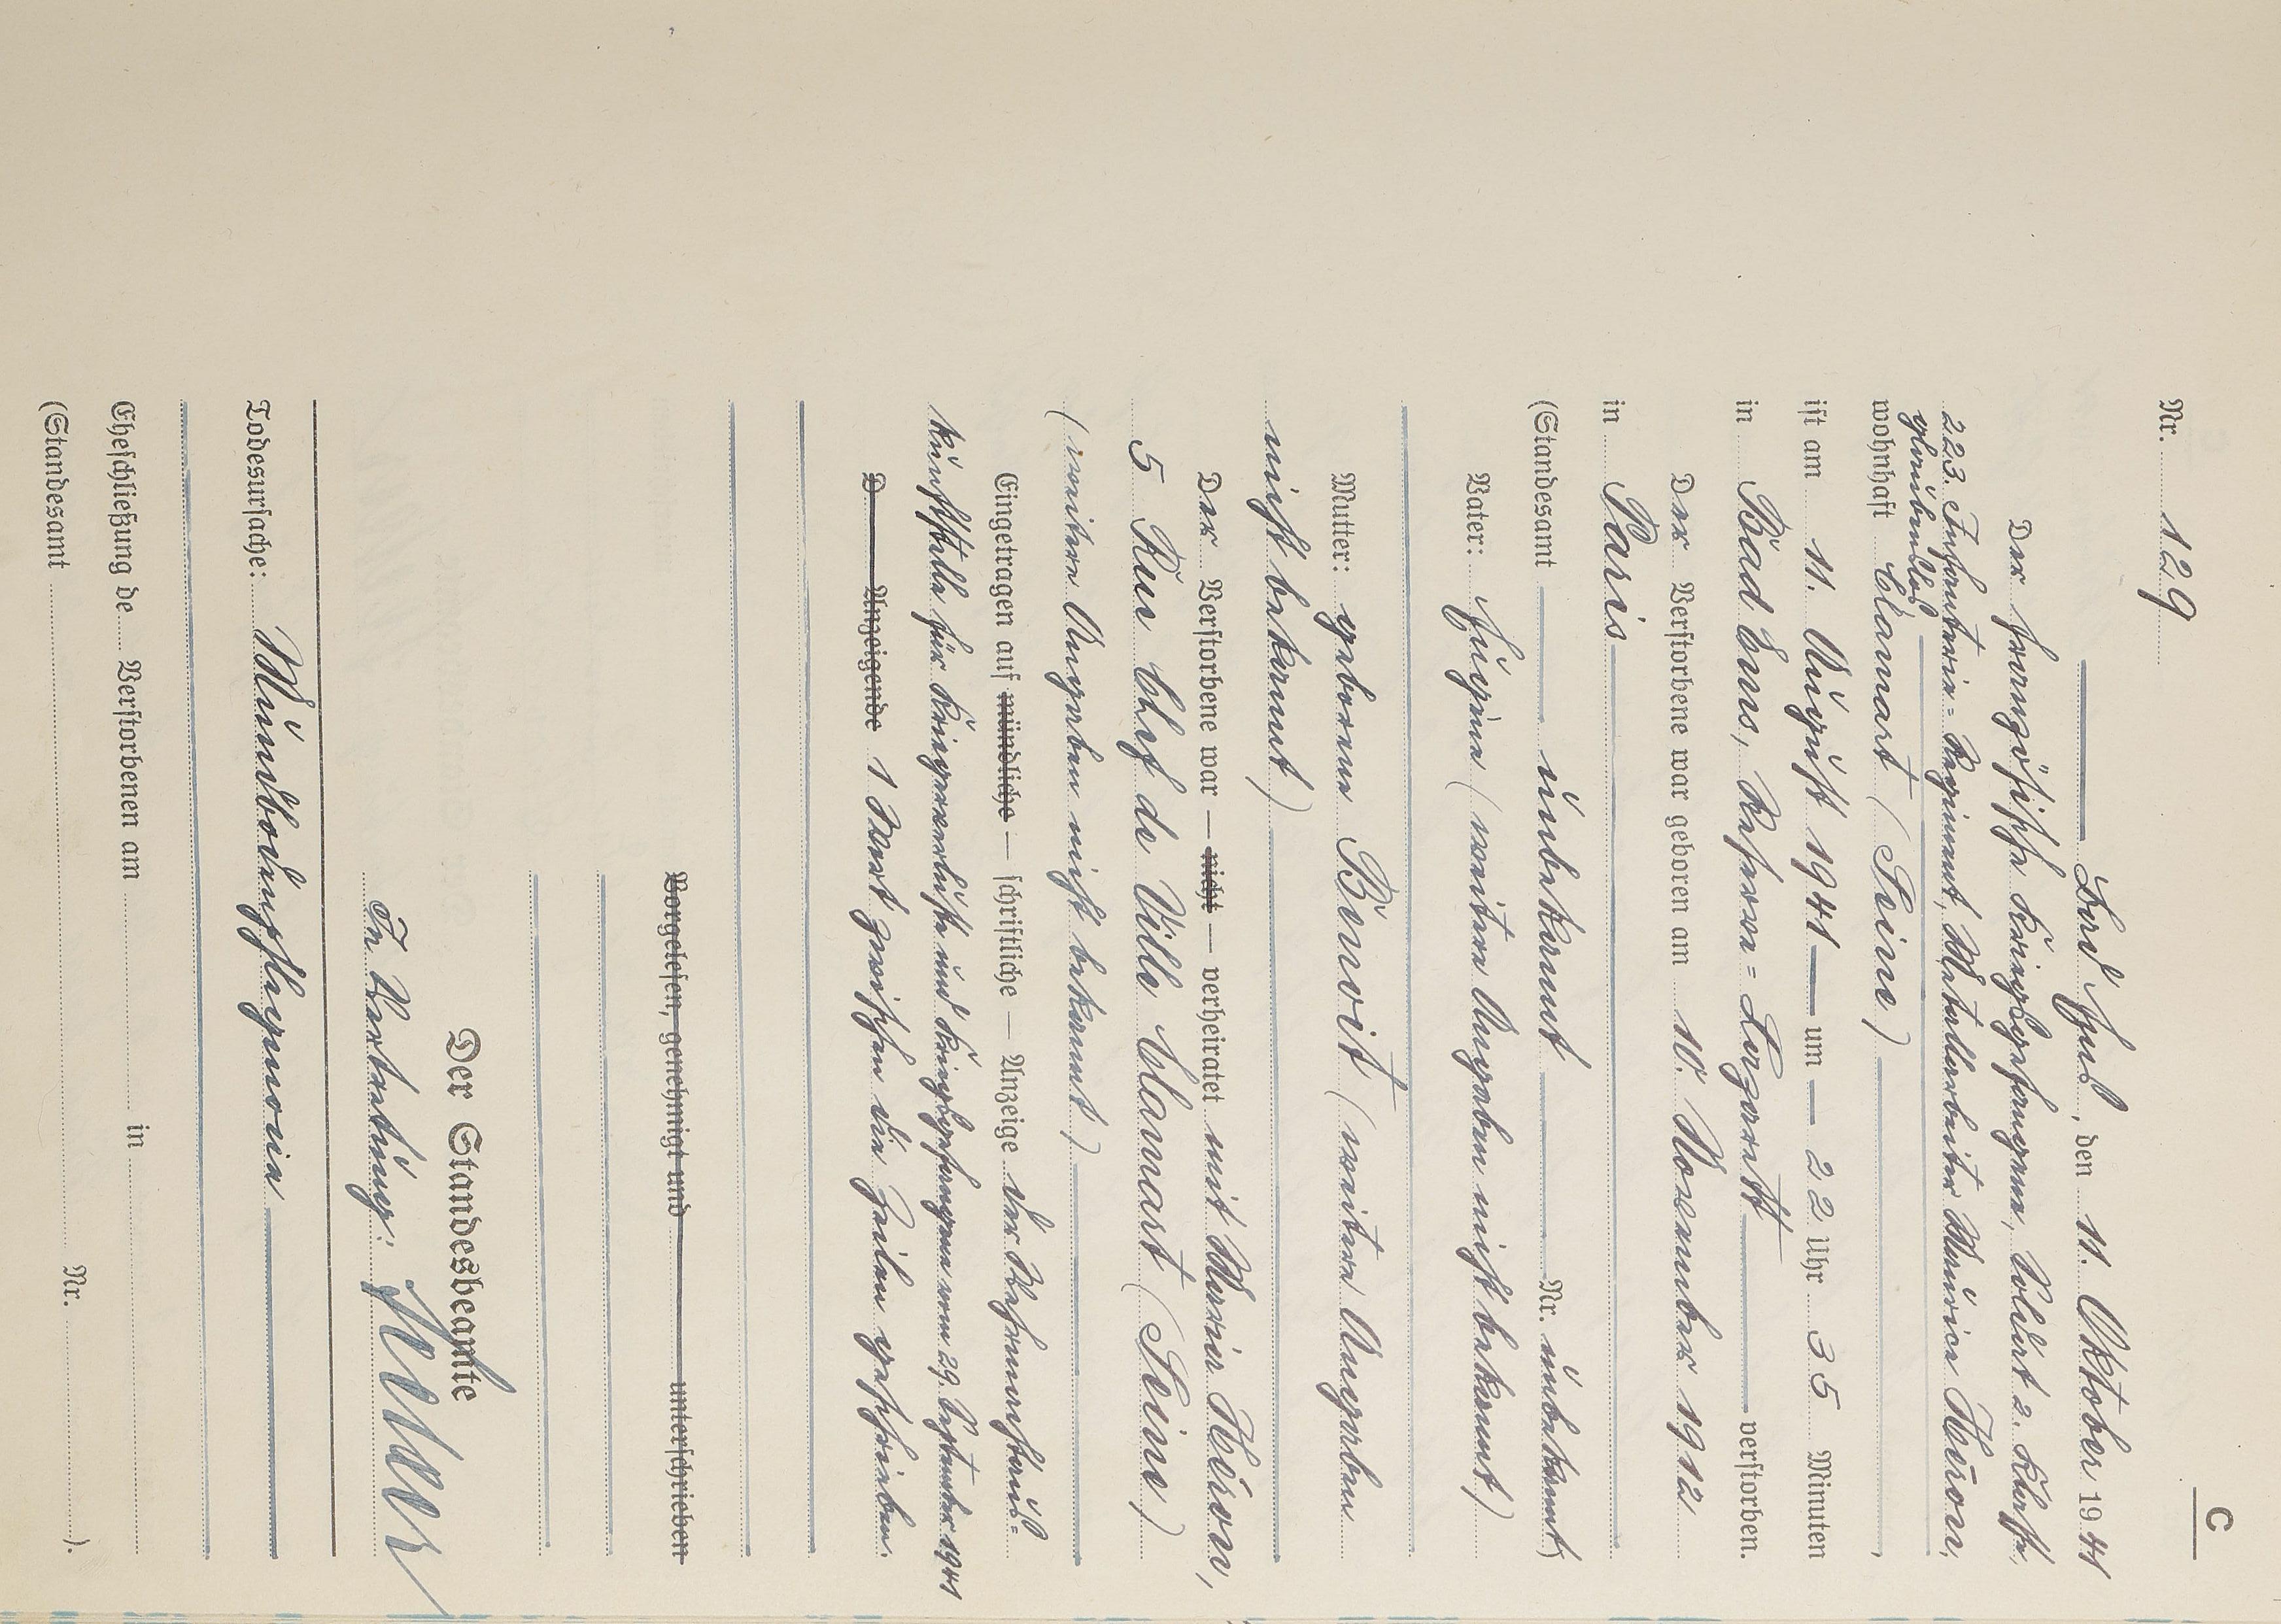 C
Nr. 129
Bad Ems, den 11. Oktober 1941
Der französische Kriegsgefangene, Soldat 2. Klasse,
223. Infanterie-Regiment, Metallarbeiter Maurice Héron,
glaubenslos
wohnhaft Clamart (Seine)
ist am 11. August 1941 um 22 Uhr 35 Minuten
in Bad Ems, Reserve-Lazarett verstorben.
Der Verstorbene war geboren am 10. November 1912
in Paris
(Standesamt unbekannt Nr. unbekannt)
Vater: Eugène (weitere Angaben nicht bekannt)
Mutter: geborene Benoit (weitere Angaben
nicht bekannt)
Der Verstorbene war — nicht — verheiratet mit Maria Héron,
5 Rue Chef de Ville Clamart (Seine)
(weitere Angaben nicht bekannt)
Eingetragen auf mündliche — schriftliche — Anzeige der Wehrmachtaus-
kunftstelle für Kriegerverluste und Kriegsgefangene vom 29. September 1941
D Anzeigende 1 Wort zwischen die Zeilen geschrieben.
Vorgelesen, genehmigt und unterschrieben
Der Standesbeamte
In Vertretung:
Todesursache: Mundbodenphlegmone
Eheschließung de Verstorbenen am in
(Standesamt Nr. ).